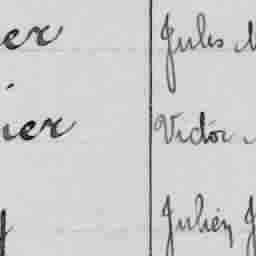 er Jules
ier Victor
Julien J